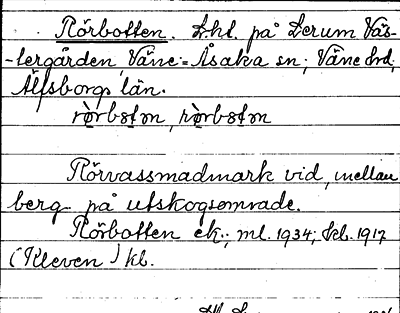 Rörbotten. Lht. på Lerum Väs-
-tergården, Väne-Åsaka sn; Väne hd;
Älfsborgs län.
Rörvassmadmark vid, mellan
berg på utskogsområde.
Rörbotten ek.; ml. 1934; kl. 1917
(Kleven) kl.